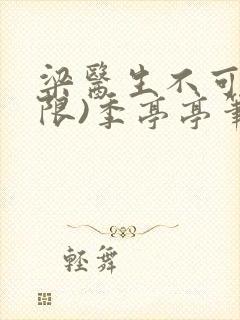 梁醫生不可
限)季亭亭筆
輕舞